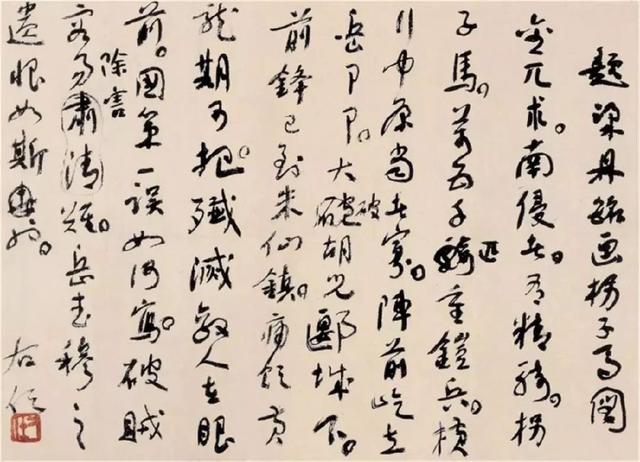 題梁鼎銘画拐子馬圖
金兀朮。南侵者。有精騎。拐
子馬。萬五千騎匹重鎧兵。橫
行中原當者寡。陣前屹立
岳爺爺。大破胡兒郾城下。
前鋒已到朱仙鎮。痛飲黃
龍期可把。殲滅敵人在眼
前。國策一誤如何寫。破賊
除害
容易肅清難。岳武穆之
遺恨如斯
右任